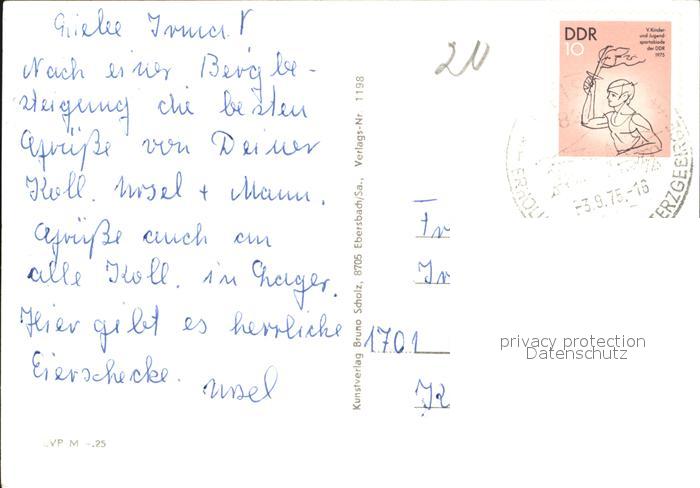 Liebe Irma!
Nach einer Bergbe-
steigung die besten
Grüße von Deiner
Koll. Ursel + Mann.
Grüße auch an
alle Koll. im Lager.
Hier gibt es herrliche
Eierschecke. Ursel
EVP M -.25
Kunstverlag Bruno Scholz, 8705 Ebersbach/Sa., Verlags-Nr. 1198
DDR
10
V. Kinder-
und Jugend-
spartakiade
der DDR
1975
-3.9.75.-16
ERZGEBIRGE
Fr
Ir
1701
privacy protection
Datenschutz